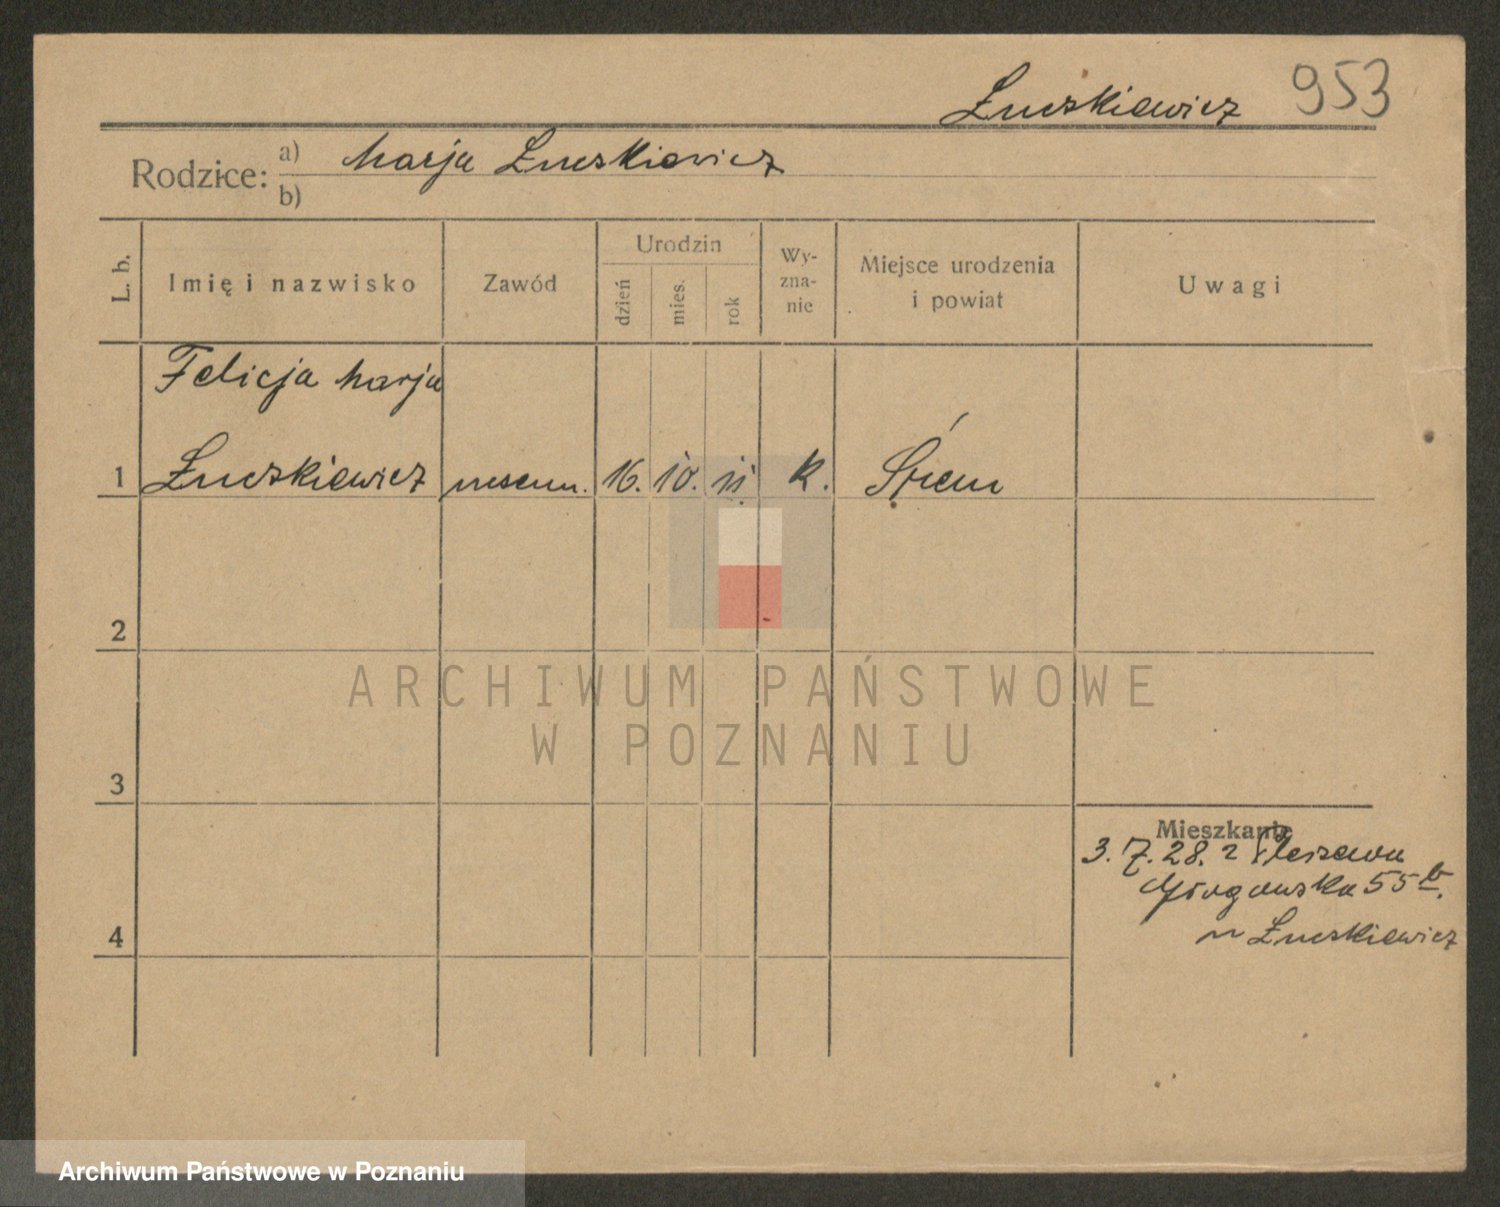 Łuczkiewicz 953
Rodzice: a) Marja Łuczkiewicz
b)
L. b. Imię i nazwisko Zawód Urodzin dzień mies. rok Wy-zna-nie Miejsce urodzenia i powiat Uwagi
Felicja Marja
1 Łuczkiewicz 16. 10. 11. k. Śrem
2
ARCHIWUM PAŃSTWOWE
W POZNANIU
3
Mieszkanie
3. 7. 28. z
Głogowska 55
4
Łuczkiewicz
Archiwum Państwowe w Poznaniu